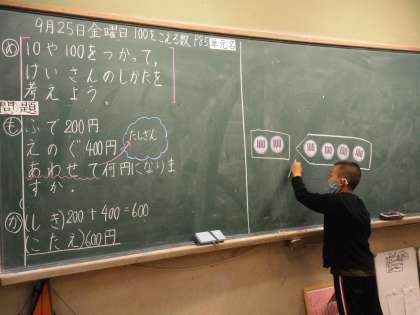 9月25日金曜日 100をこえる数 P85 単元名
め 10や100をつかって、
けいさんのしかたを
考えよう。
問題
も ふで200円
えのぐ400円
たしざん
あわせて何円になりま
すか。
か (しき)200+400=600
(こたえ)600円
100 100
100 100 100 100